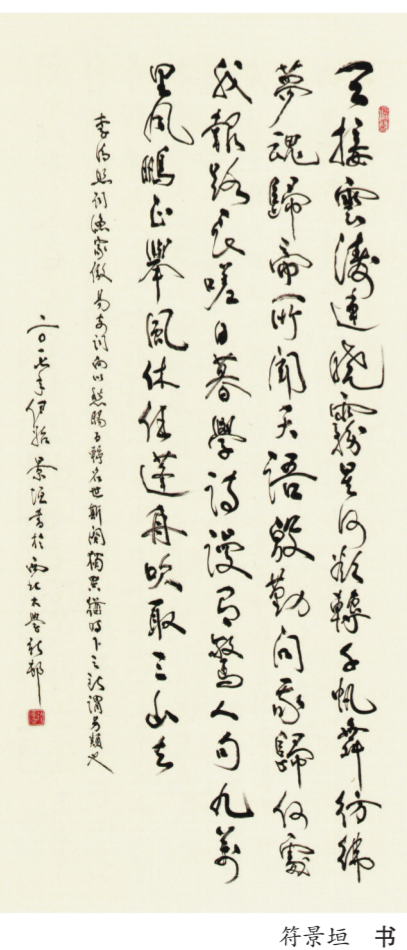 天接雲濤連曉霧星河欲轉千帆舞彷彿
夢魂歸帝所聞天語殷勤問我歸何處
我報路長嗟日暮學詩謾有驚人句九萬
里風鵬正舉風休住蓬舟吹取三山去
李清照詞漁家傲易安詞向以愁腸百轉名世斯闋獨異猶時下之所謂另類也
二〇一七年伊始景垣書於西北大學新邨
符景垣 书